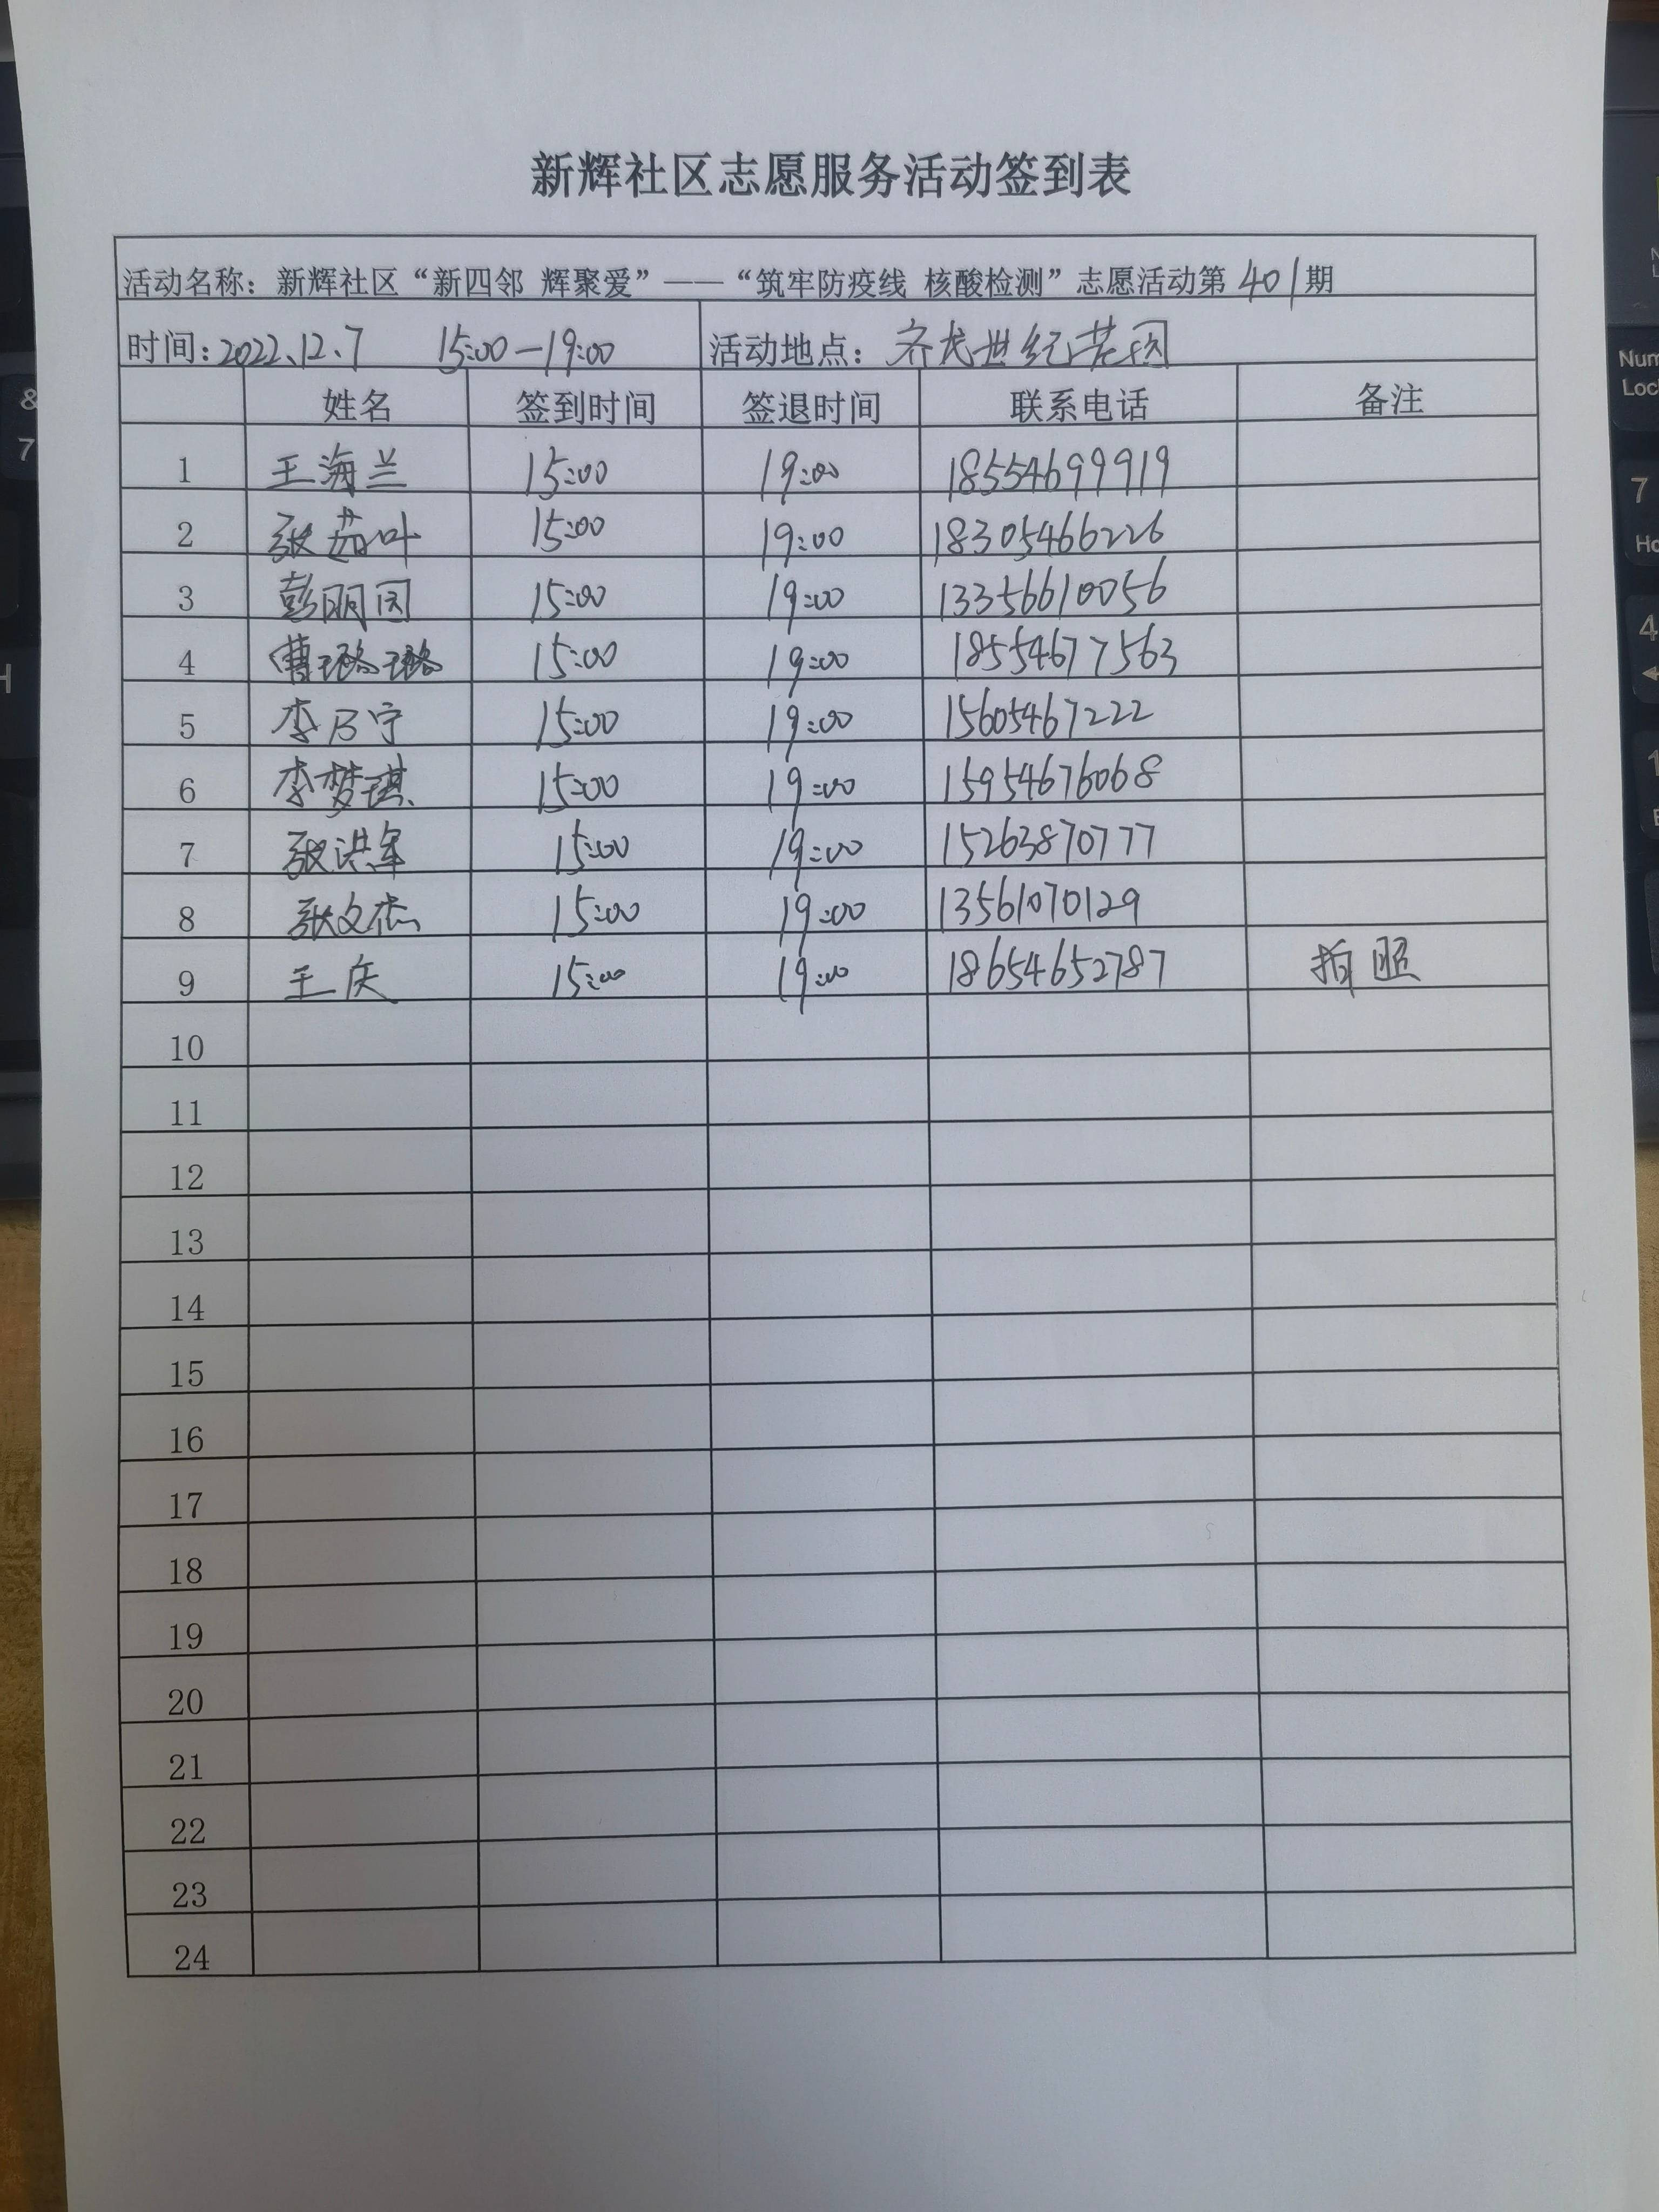 新辉社区志愿服务活动签到表
活动名称：新辉社区“新四邻 辉聚爱”——“筑牢防疫线 核酸检测”志愿活动第401期
时间：2022.12.7 15:00—19:00 活动地点：齐龙世纪花园
姓名 签到时间 签退时间 联系电话 备注
1 王海兰 15:00 19:00 18554699919
2 张茹叶 15:00 19:00 18305466226
3 彭明园 15:00 19:00 13356610056
4 曹璐璐 15:00 19:00 18554677563
5 李乃宁 15:00 19:00 15605467222
6 李梦琪 15:00 19:00 15954676068
7 张洪军 15:00 19:00 15263870777
8 张文杰 15:00 19:00 13561070129
9 王庆 15:00 19:00 18654652787 拍照
10
11
12
13
14
15
16
17
18
19
20
21
22
23
24